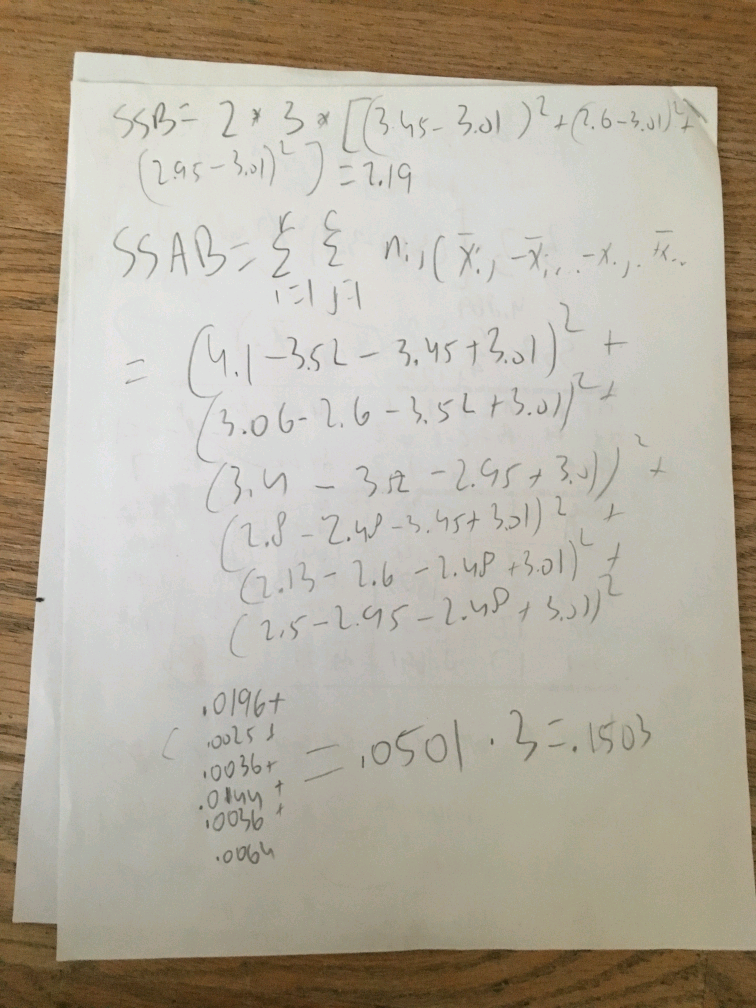 SSB = 2 * 3 * [(3.45 - 3.01)² + (2.6 - 3.01)² +
(2.95 - 3.01)²] = 2.19
SSAB = r Σ i=1 c Σ j=1 nij (x̄ij - x̄i.. - x.j. + x̄...
= (4.1 - 3.52 - 3.45 + 3.01)² +
(3.06 - 2.6 - 3.52 + 3.01)² +
(3.4 - 3.52 - 2.95 + 3.01)² +
(2.8 - 2.48 - 3.45 + 3.01)² +
(2.13 - 2.6 - 2.48 + 3.01)² +
(2.5 - 2.95 - 2.48 + 3.01)²
.0196 +
( .0025 +
.0036 + = .0501 · 3 = .1503
.0144 +
.0036 +
.0064